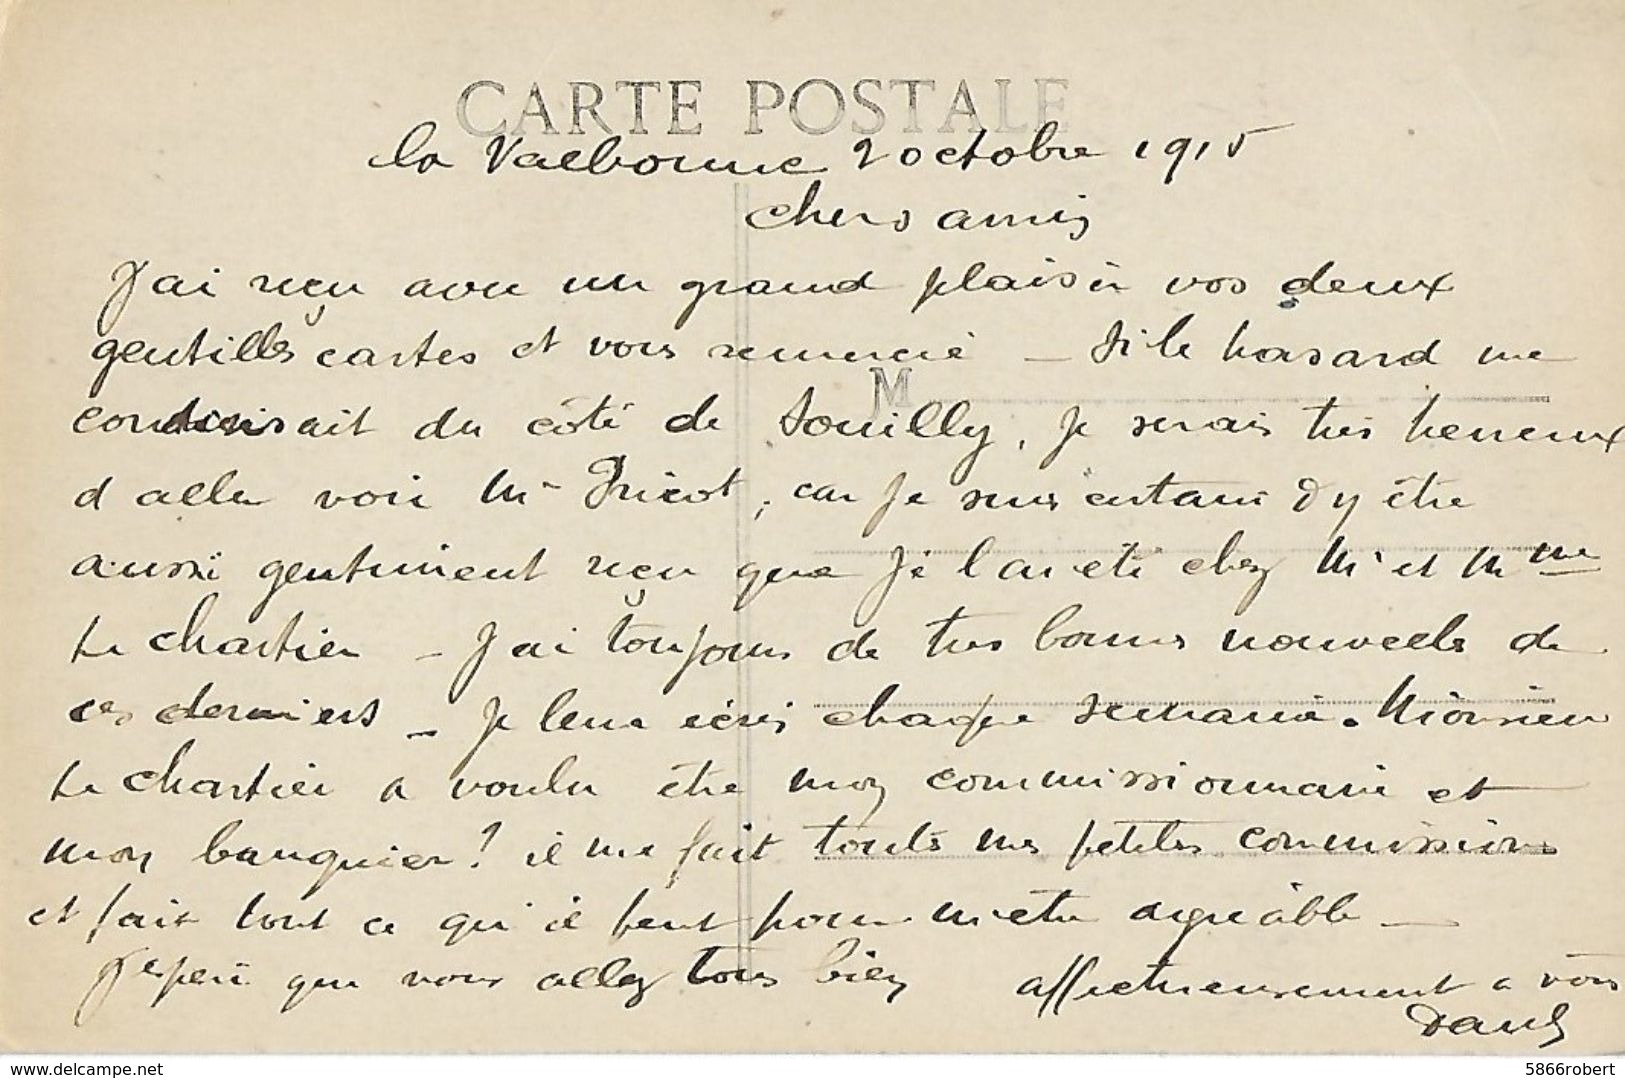 CARTE POSTALE
la Valbonne 2 octobre 1915
chers amis
J'ai reçu avec un grand plaisir vos deux
gentilles cartes et vous remercie – Si le hasard me
conduisait du côté de Souilly, je serais très heureux
d aller voir Mr Pricot, car je suis certain d y être
aussi gentiment reçu que je l ai été chez Mr et Mme
Le Chartier – J'ai toujours de très bonnes nouvelles de
ces derniers – Je leur écris chaque semaine. Monsieur
M
Le Chartier a voulu être mon commissionnaire et
mon banquier ! il me fait toutes mes petites commissions
et fait tout ce qu'il peut pour m'être agréable –
J'espère que vous allez tous bien affectueusement a vous
delcampe.net
5866robert